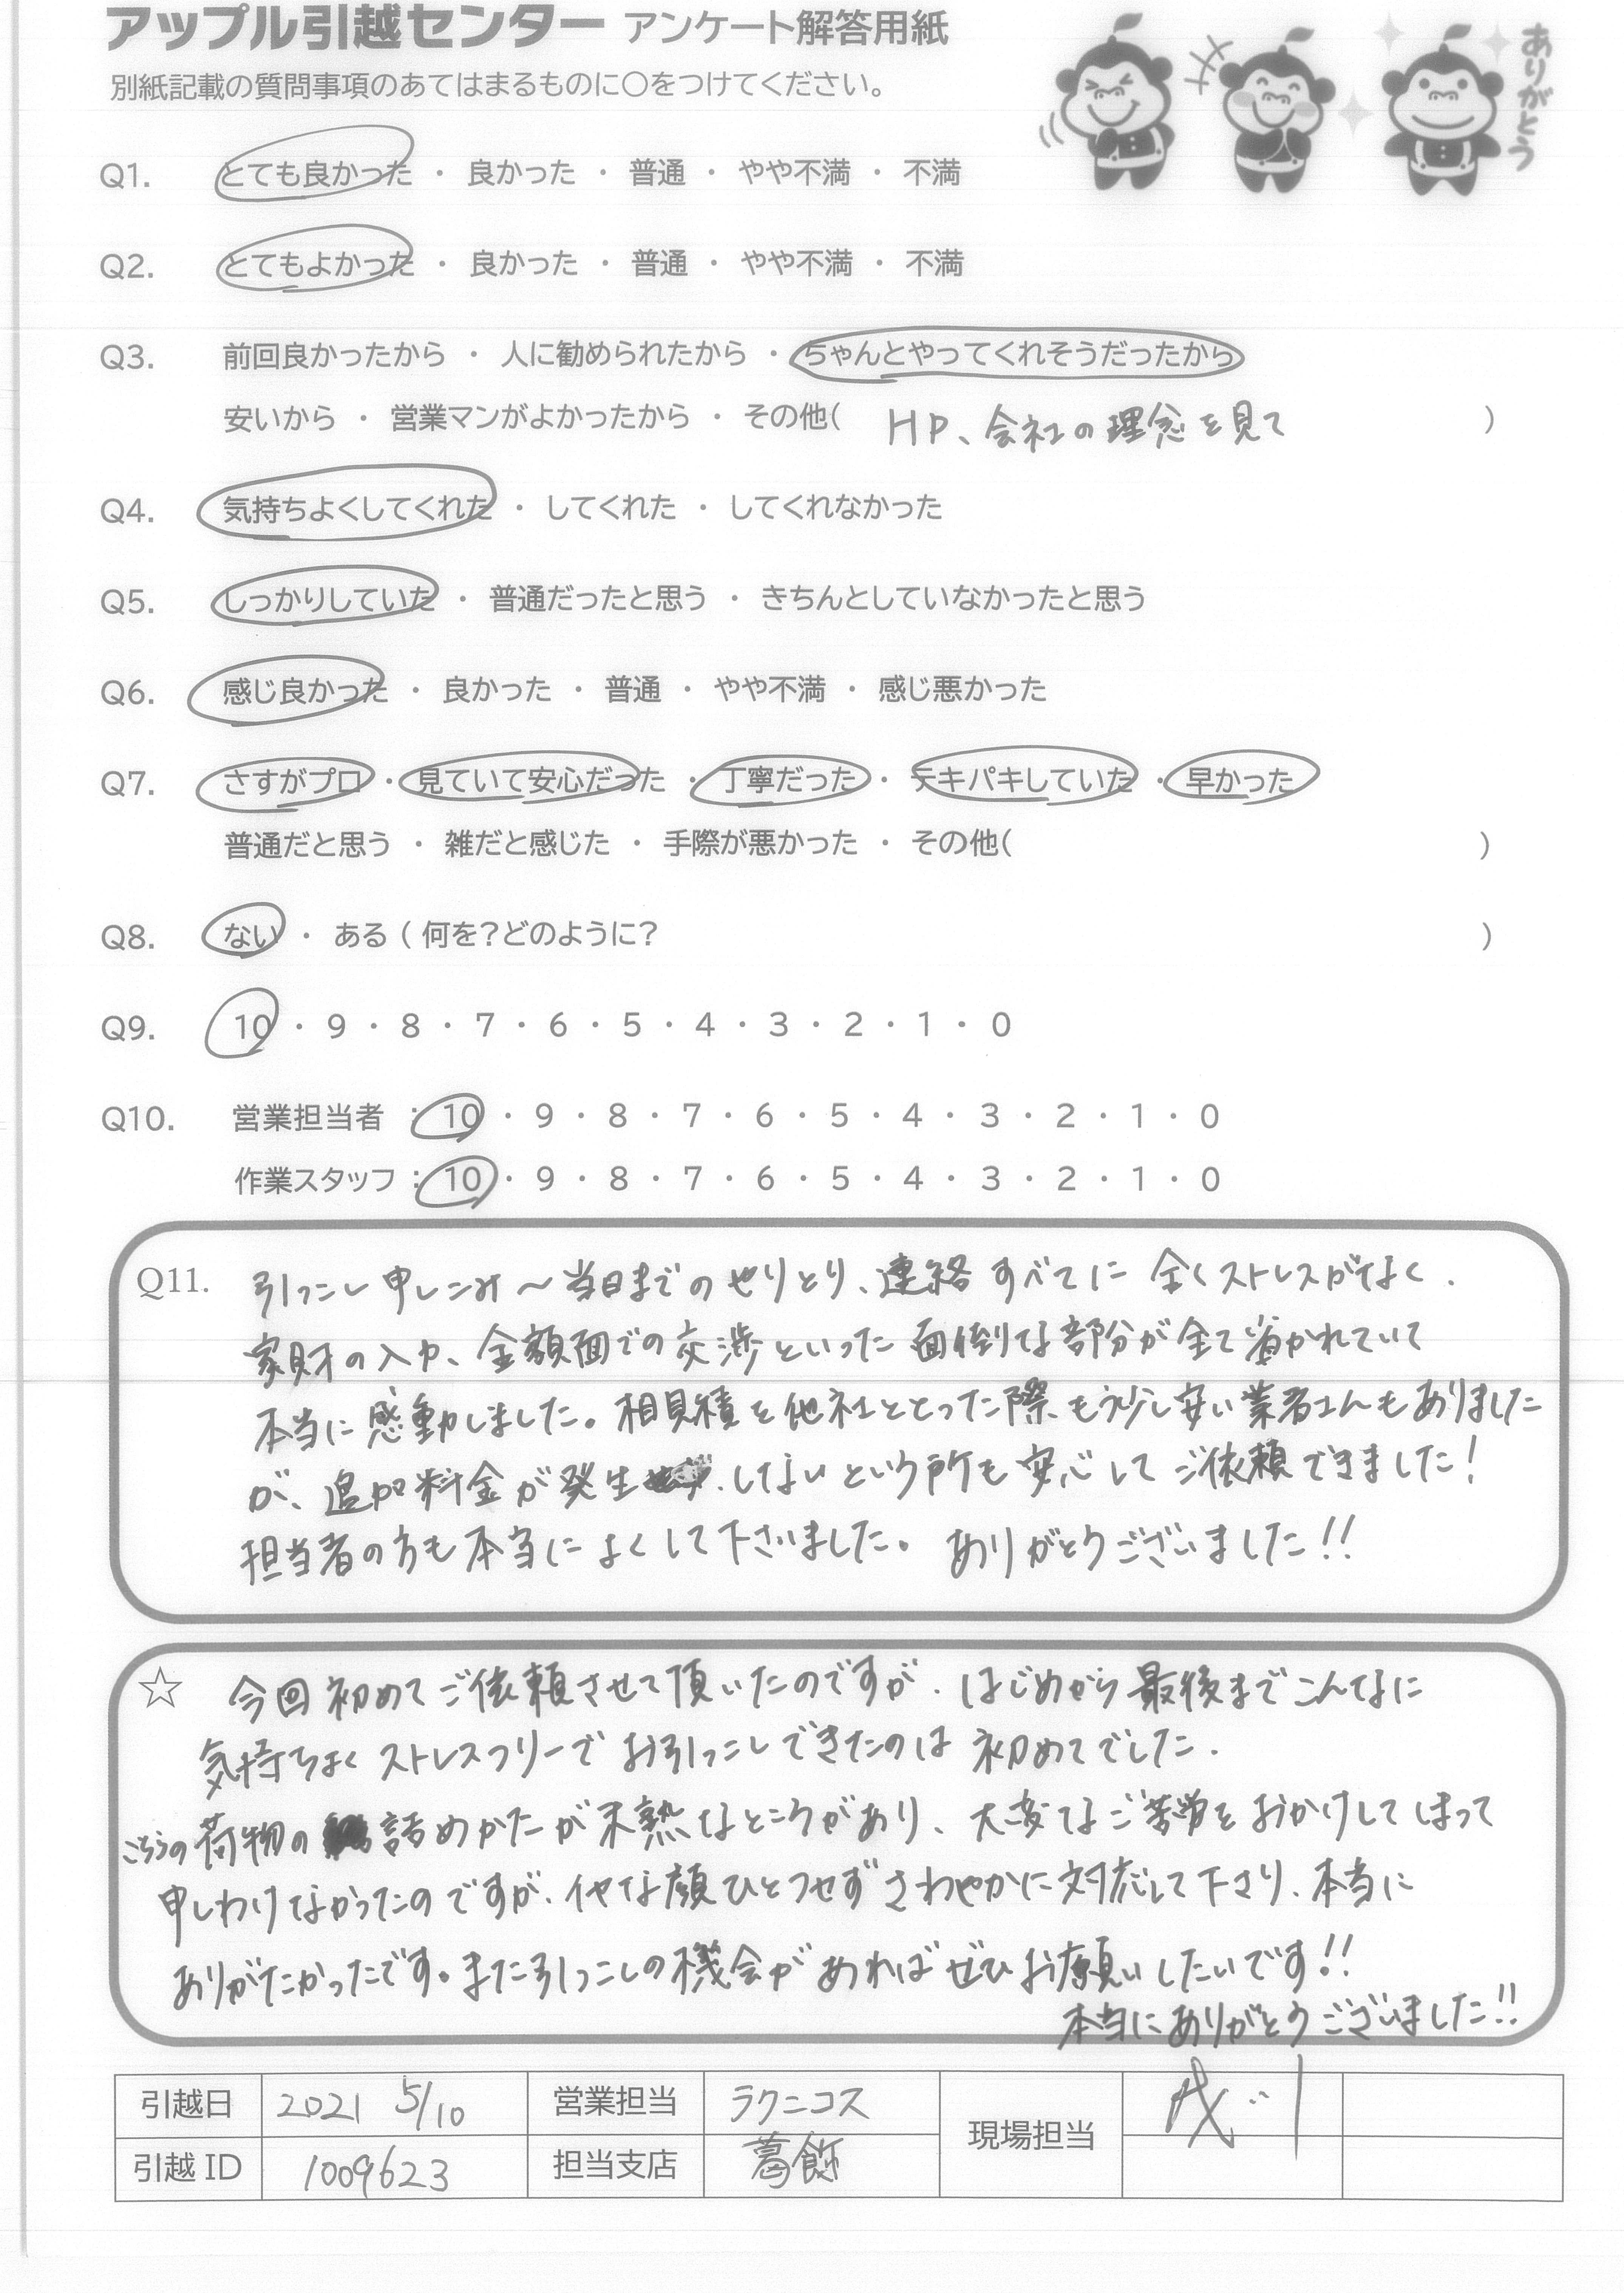 アップル引越センター アンケート解答用紙
別紙記載の質問事項のあてはまるものに○をつけてください。
ありがとう
Q1. とても良かった ・ 良かった ・ 普通 ・ やや不満 ・ 不満
Q2. とてもよかった ・ 良かった ・ 普通 ・ やや不満 ・ 不満
Q3. 前回良かったから ・ 人に勧められたから ・ ちゃんとやってくれそうだったから
安いから ・ 営業マンがよかったから ・ その他( HP、会社の理念を見て )
Q4. 気持ちよくしてくれた ・ してくれた ・ してくれなかった
Q5. しっかりしていた ・ 普通だったと思う ・ きちんとしていなかったと思う
Q6. 感じ良かった ・ 良かった ・ 普通 ・ やや不満 ・ 感じ悪かった
Q7. さすがプロ ・ 見ていて安心だった ・ 丁寧だった ・ テキパキしていた ・ 早かった
普通だと思う ・ 雑だと感じた ・ 手際が悪かった ・ その他( )
Q8. ない ・ ある ( 何を?どのように? )
Q9. 10 ・ 9 ・ 8 ・ 7 ・ 6 ・ 5 ・ 4 ・ 3 ・ 2 ・ 1 ・ 0
Q10. 営業担当者 : 10 ・ 9 ・ 8 ・ 7 ・ 6 ・ 5 ・ 4 ・ 3 ・ 2 ・ 1 ・ 0
作業スタッフ : 10 ・ 9 ・ 8 ・ 7 ・ 6 ・ 5 ・ 4 ・ 3 ・ 2 ・ 1 ・ 0
Q11. 引っこし申しこみ～当日までのやりとり、連絡すべてに全くストレスがなく、
家財の入力、金額面での交渉といった面倒な部分が全て省かれていて
本当に感動しました。相見積を他社ととった際、もう少し安い業者さんもありました
が、追加料金が発生しないという所も安心してご依頼できました!
担当者の方も本当によくして下さいました。ありがとうございました!!
☆ 今回初めてご依頼させて頂いたのですが、はじめから最後までこんなに
気持ちよくストレスフリーでお引っこしできたのは初めてでした。
こちらの荷物の詰めかたが未熟なところがあり、大変なご苦労をおかけしてしまって
申しわけなかったのですが、イヤな顔ひとつせずさわやかに対応して下さり、本当に
ありがたかったです。また引っこしの機会があればぜひお願いしたいです!!
本当にありがとうございました!!
引越日 2021 5/10 営業担当 ラクニコス 現場担当
引越ID 1009623 担当支店 葛飾